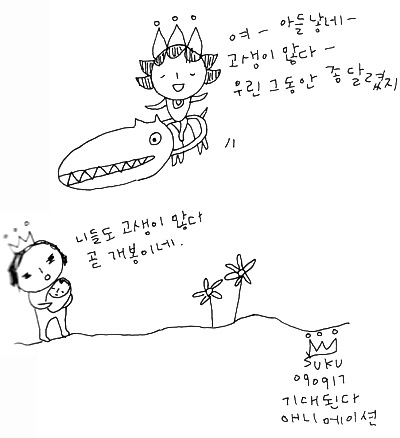 여 - 아들낳네 -
고생이 많다 -
우린 그동안 좀 달렸지
니들도 고생이 많다
곧 개봉이네.
SUKU
090917
기대된다
애니메이션